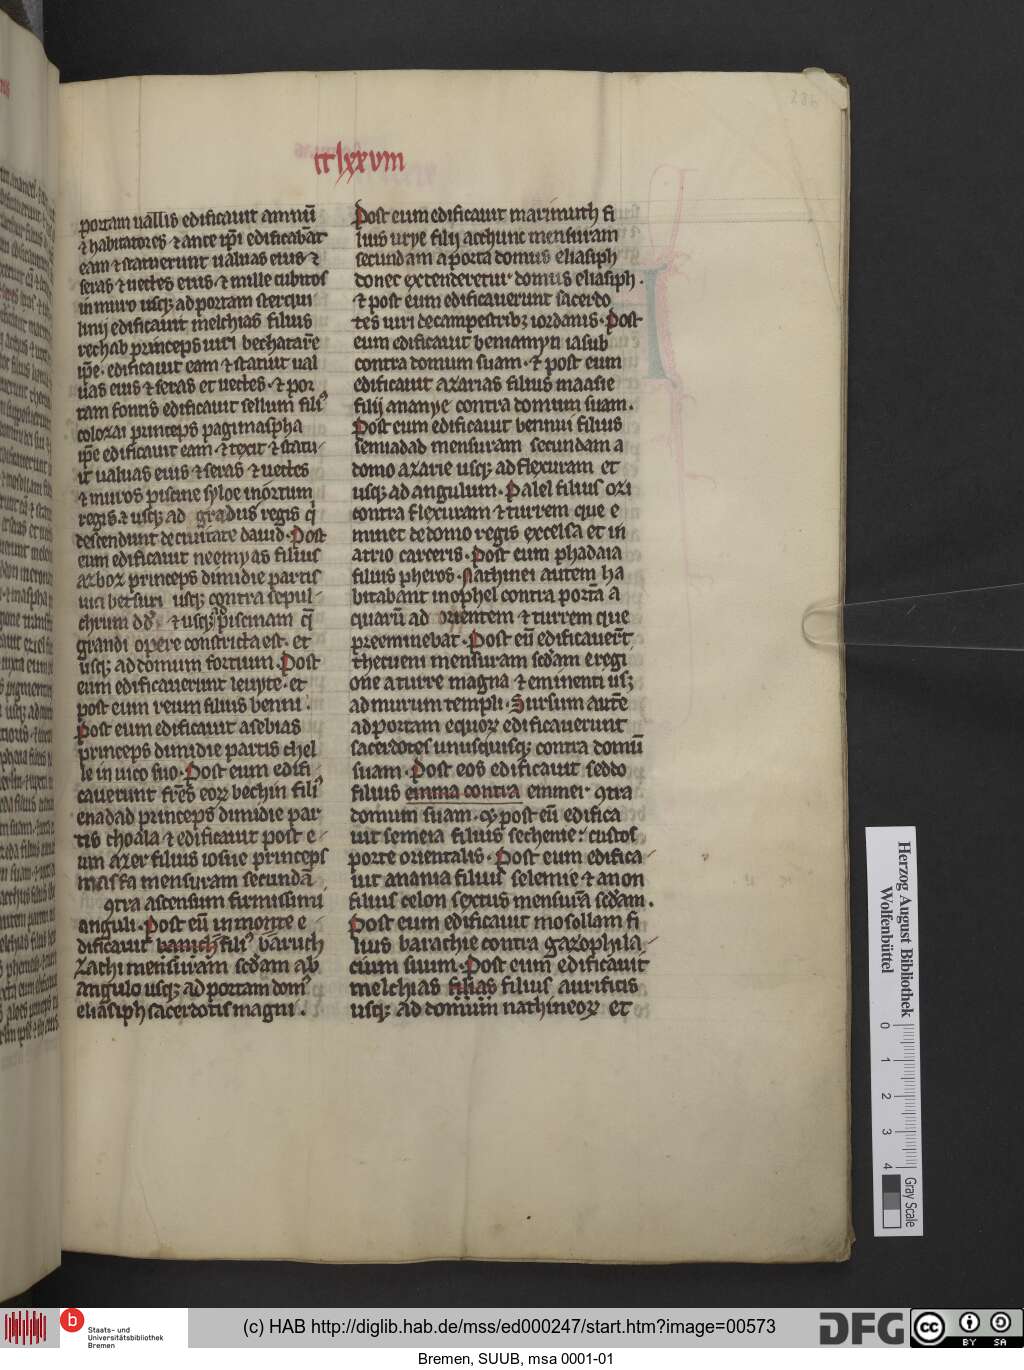 cclxxviii
portam uallis edificauit ammū
⁊ habitatores ⁊ ante ip̄i edificabāt
eam ⁊ statuerunt ualuas eius ⁊
seras ⁊ uectes eius ⁊ mille cubitos
in muro usqꝫ ad portam sterqui
linij edificauit melchias filius
rechab princeps uici bechatarē
ip̄e· edificauit eam ⁊ statuit ual
uas eius ⁊ seras et uectes· ⁊ por
tam fontis edificauit sellum filiꝰ
colozai princeps pagi maspha
ip̄e edificauit eam ⁊ texit ⁊ statu
it ualuas eius ⁊ seras ⁊ uectes
⁊ muros piscine syloe in ortum
regis ⁊ usqꝫ ad gradus regis q̇
descendunt de ciuitate dauid· Post
eum edificauit neemyas filius
azboz princeps dimidie partis
uici betsuri usqꝫ contra sepul
chrum dd ⁊ usqꝫ piscinam q̄
grandi opere constricta est· et
usqꝫ ad domum fortium· Post
eum edificauerunt leuyte· et
post eum reum filius benni·
Post eum edificauit asebias
princeps dimidie partis chel
le in uico suo· Post eum edifi
cauerunt fr̄es eoꝝ bechin filiꝰ
enadad princeps dimidie par
tis choala ⁊ edificauit post e
um azer filius iosue princeps
masfa mensuram secundā
ꝯtra ascensum firmissimi
anguli· Post eū in monte e
dificauit baruch filiꝰ baruch
zachi mensuram sc̄dam ab
angulo usqꝫ ad portam domꝰ
eliasiph sacerdotis magni·
Post eum edificauit marimuth fi
lius urye filij acchuнс mensuram
secundam a porta domus eliasiph
donec extenderetur domus eliasiph·
⁊ post eum edificauerunt sacerdo
tes uiri de campestribꝫ iordanis· Post
eum edificauit beniamyn iasub
contra domum suam· ⁊ post eum
edificauit azarias filius maasie
filij ananye contra domum suam·
Post eum edificauit bennui filius
semiadad mensuram secundam a
domo azarie usqꝫ ad flexuram et
usqꝫ ad angulum· Palel filius ozi
contra flexuram ⁊ turrem que e
minet de domo regis excelsa et in
atrio carceris· Post eum phadaia
filius pheros· Nathinei autem ha
bitabant in ophel contra portā a
quarū ad orientem ⁊ turrem que
preeminebat· Post eū edificauer̄t
thecueni mensuram sc̄dam e regi
one a turre magna ⁊ eminenti usꝫ
ad murum templi· Sursum aut̄e
ad portam equoꝝ edificauerunt
sacerdotes unusquisqꝫ contra domū
suam· Post eos edificauit seddo
filius emma contra emmer ꝯtra
domum suam· ⁊ post eū edifica
uit semeia filius sechenie· custos
porte orientalis· Post eum edifica
uit anania filius selemie ⁊ anon
filius celon sextus mensurā sc̄dam·
Post eum edificauit mosollam fi
lius barachie contra gazophyla
cium suum· Post eum edificauit
melchias filias filius aurificis
usqꝫ ad domum nathineoꝝ et
Herzog August Bibliothek
Wolfenbüttel
0 1 2 3 4
Gray Scale
b Staats- und
Universitätsbibliothek
Bremen
(c) HAB http://diglib.hab.de/mss/ed000247/start.htm?image=00573
DFG
cc BY SA
Bremen, SUUB, msa 0001-01